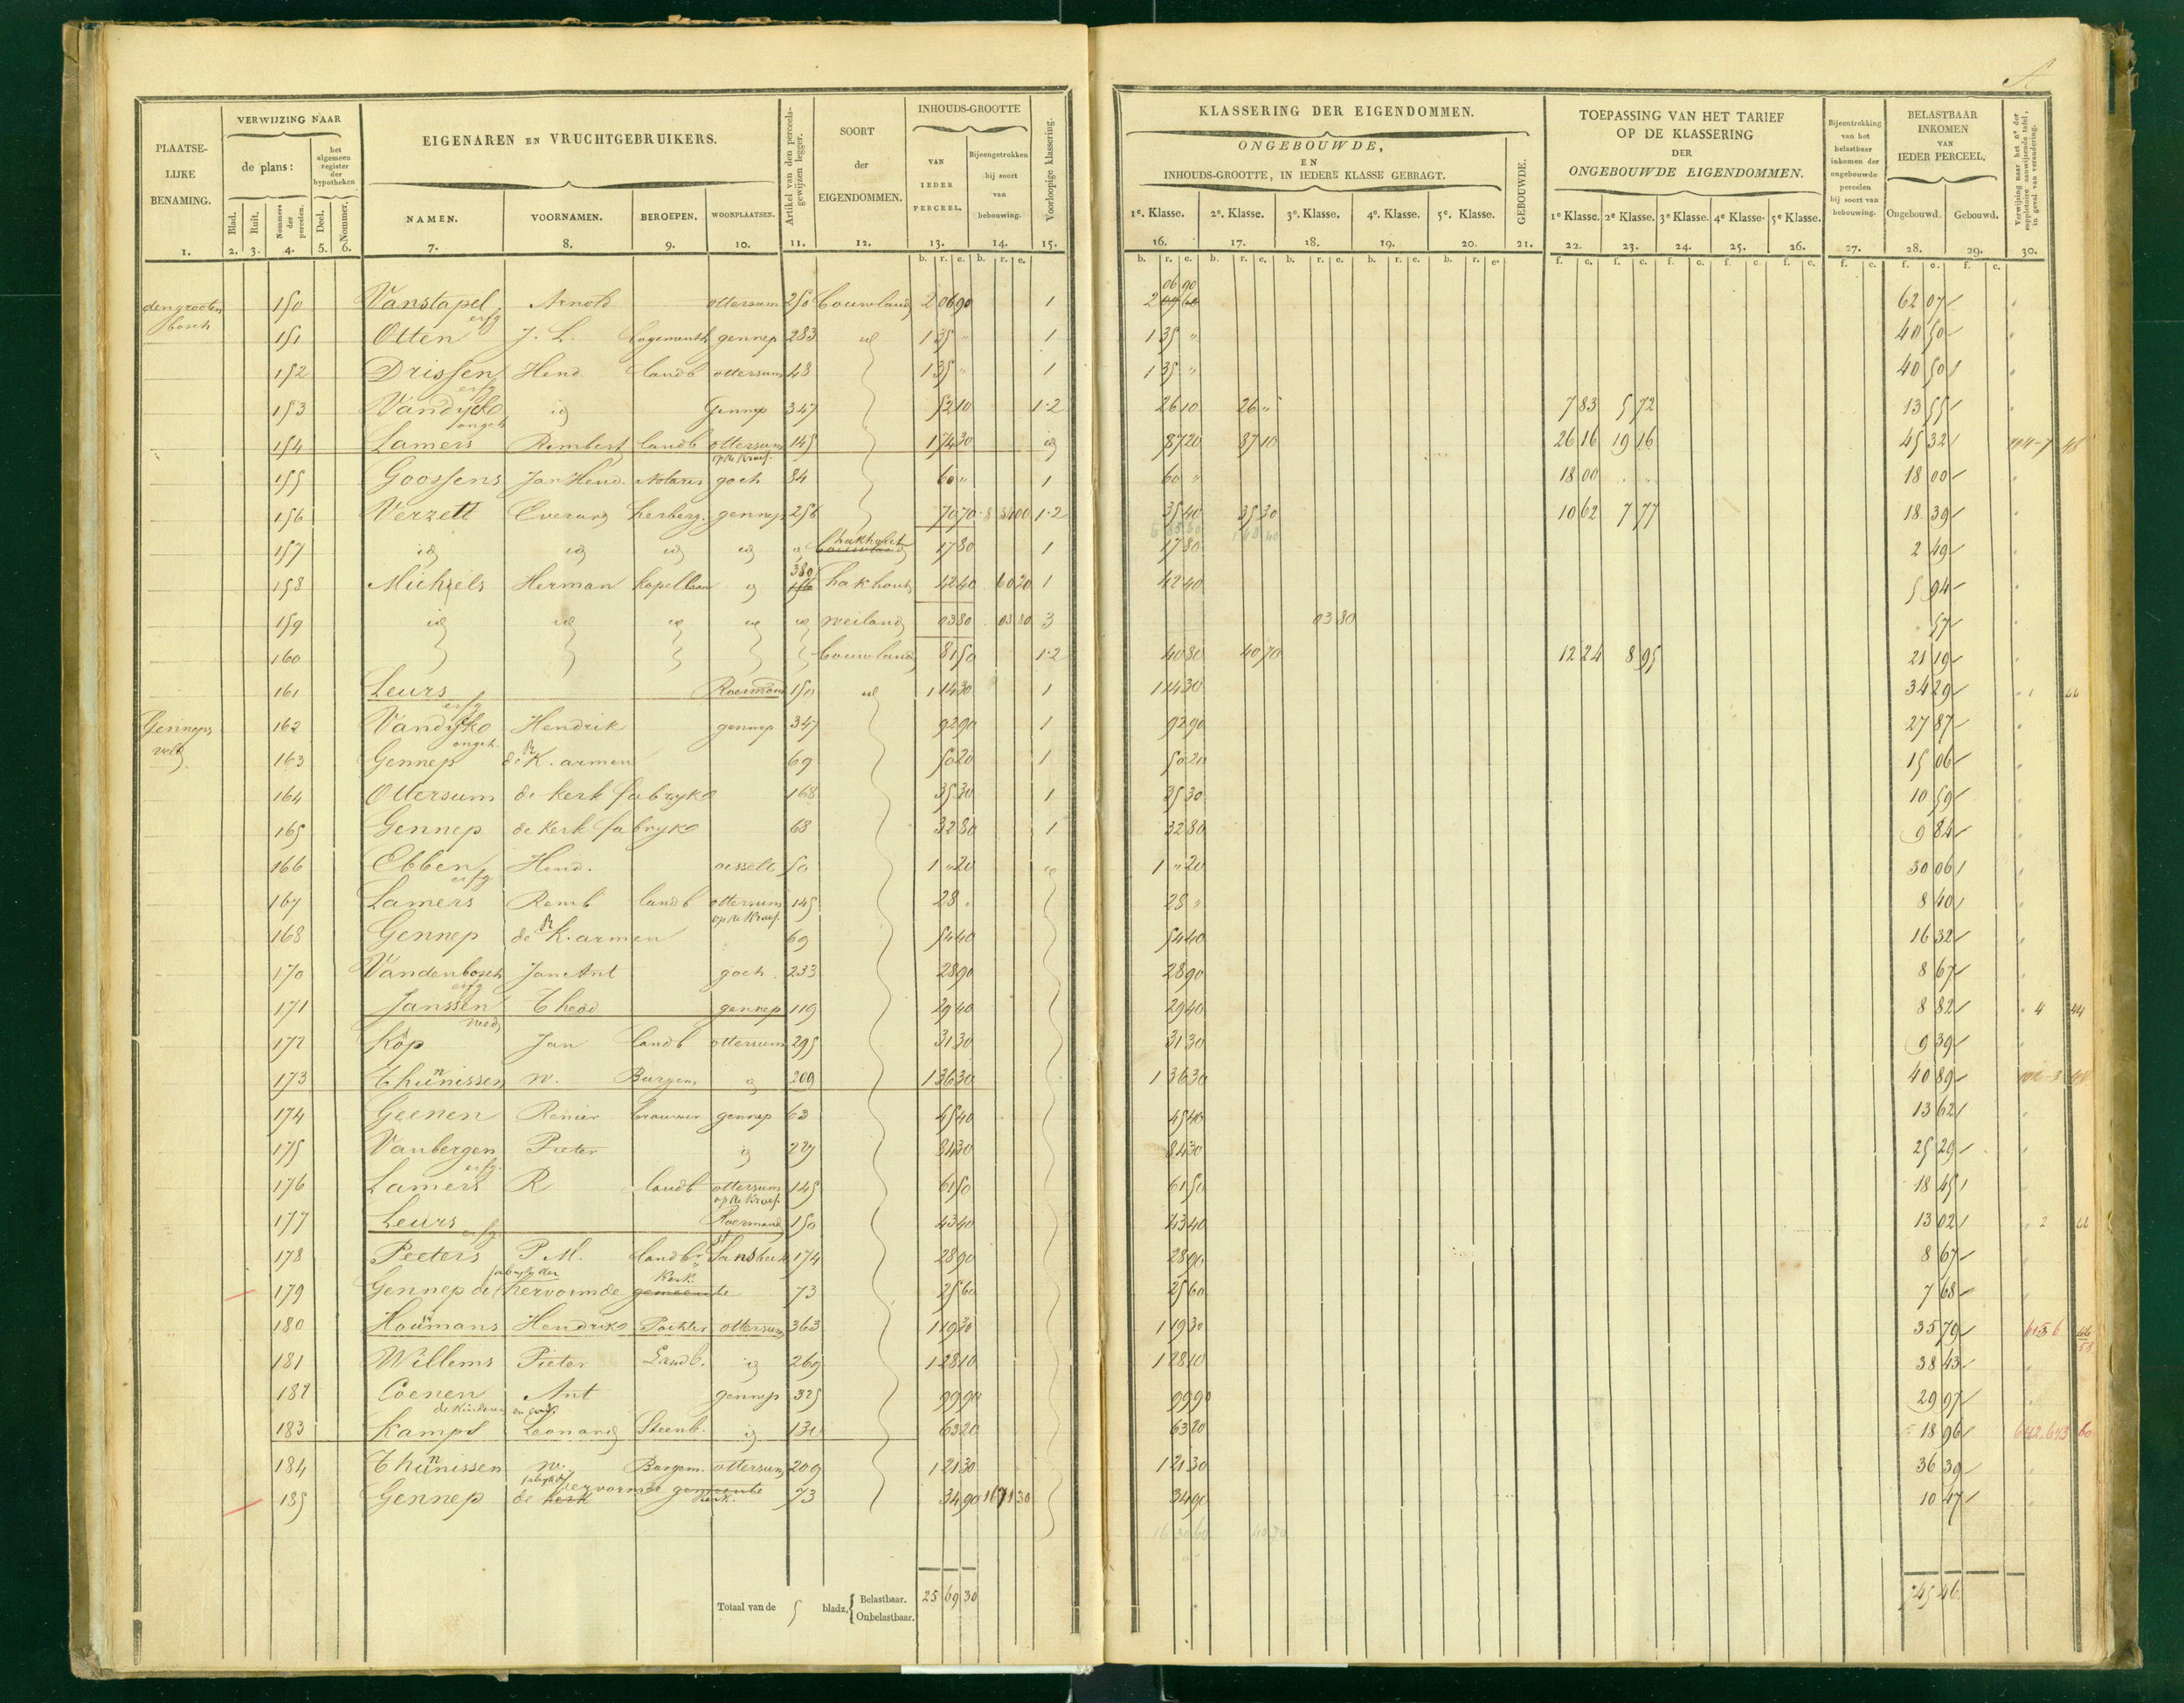 PLAATSE-LIJKE BENAMING. 1.
VERWIJZING NAAR
de plans:
Blad. 2. Ruit. 3. Nommers der perceelen. 4.
het algemeen register der hypotheken
Deel. 5. Nommer. 6.
EIGENAREN EN VRUCHTGEBRUIKERS.
NAMEN. 7. VOORNAMEN. 8. BEROEPEN. 9. WOONPLAATSEN. 10.
Artikel van den perceels-gewijzen legger. 11.
SOORT der EIGENDOMMEN. 12.
INHOUDS-GROOTTE
VAN IEDER PERCEEL. 13.
Bijeengetrokken bij soort van bebouwing. 14.
Voorloopige klassering. 15.
KLASSERING DER EIGENDOMMEN.
ONGEBOUWDE,
EN
INHOUDS-GROOTTE, IN IEDERE KLASSE GEBRAGT.
1e. Klasse. 16. 2e. Klasse. 17. 3e. Klasse. 18. 4e. Klasse. 19. 5e. Klasse. 20.
GEBOUWDE. 21.
TOEPASSING VAN HET TARIEF
OP DE KLASSERING
DER
ONGEBOUWDE EIGENDOMMEN.
1e Klasse. 22. 2e Klasse. 23. 3e Klasse. 24. 4e Klasse. 25. 5e Klasse. 26.
Bijeentrekking van het belastbaar inkomen der ongebouwde perceelen bij soort van bebouwing. 27.
BELASTBAAR INKOMEN VAN IEDER PERCEEL.
Ongebouwd. 28. Gebouwd. 29.
Verwijzing naar het no. der suppletoire aanwijzende tafel, in geval van verandering. 30.
den grooten bosch 150 Vanstapel erfg Arnold ottersum 250 bouwland 2 06 90 1 2 06 90 62 07
151 Otten J. L. Logementh gennep 283 id 1 35 " 1 1 35 " 40 50
152 Drissen erfg Hend. landb ottersum 48 1 35 " 1 1 35 " 40 50
153 Vandijck ongeh id Gennep 347 52 10 1·2 26 10 26 " 7 83 5 72 13 55
154 Lamers Rembert landb ottersum op de Kroef. 145 1 74 30 id 87 20 87 10 26 16 19 16 45 32
155 Goossens Jan Hend. Notaris goch 84 60 " 1 60 " 18 00 18 00
156 Verzett Everard herberg. gennep 256 70 70 8 34 00 1·2 35 40 35 30 10 62 7 77 18 39
157 id id id id id hakhout 17 80 1 17 80 2 49
158 Michiels Herman kapellaan id 380 hakhout 42 40 60 20 1 42 40 5 94
159 id id id id id weiland 03 80 03 80 3 03 80 57
160 bouwland 81 50 1·2 40 80 40 70 12 24 8 95 21 19
161 Leurs erfg Roermond 150 id 1 14 30 1 1 14 30 34 29
Genneps veld 162 Vandijck ongeh. Hendrik gennep 347 92 90 1 92 90 27 87
163 Gennep de R K. armen 69 50 20 1 50 20 15 06
164 Ottersum de kerk fabryk 168 35 30 1 35 30 10 59
165 Gennep de kerk fabryk 68 32 80 1 32 80 9 84
166 Ebben erfg Hend. oesselt 50 1 " 20 1 " 20 30 06
167 Lamers Remb landb ottersum op de Kroef. 145 28 " 28 " 8 40
168 Gennep de R K. armen 69 54 40 54 40 16 32
170 Vandenbosch erfg Jan Ant goch 233 28 90 28 90 8 67
171 Janssen wed Theod gennep 119 29 40 29 40 8 82 4 44
172 Kop Jan landb ottersum 295 31 30 31 30 9 39
173 Thunissen W. Burgem id 209 1 36 30 1 36 30 40 89
174 Geenen Renier brouwer gennep 63 45 40 45 40 13 62
175 Vanbergen erfg. Pieter id 227 84 30 84 30 25 29
176 Lamers R landb ottersum op de Kroef. 145 61 50 61 50 18 45
177 Leurs erfg. Roermond 150 43 40 43 40 13 02 2
178 Peeters P. M. landbr 174 28 90 28 90 8 67
179 Gennep de hervormde gemeente Kerk. 73 25 60 25 60 7 68
180 Houmans Hendrik Pachter ottersum 363 1 19 30 1 19 30 35 79
181 Willems Pieter Landb. id 269 1 28 10 1 28 10 38 43
182 Coenen de kinderen Ant gennep 325 99 90 99 90 29 97
183 Kamps Leonard Steenb. id 130 63 20 63 20 18 96 642.643 60
184 Thunissen W. Burgem. ottersum 209 1 21 30 1 21 30 36 39
185 Gennep de kerk hervormde gemeente kerk. 73 34 90 16 71 30 34 90 10 47
16 30 60 40 70
Totaal van de 5 bladz. Belastbaar. 25 69 30
Onbelastbaar.
745 46